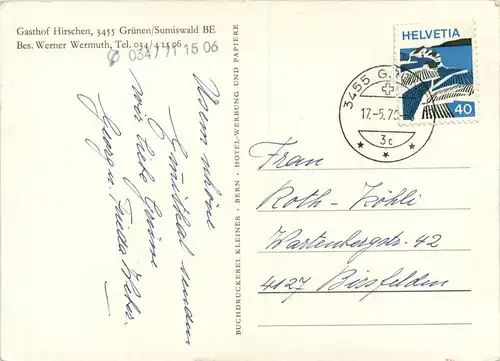 Gasthof Hirschen, 3455 Grünen/Sumiswald BE
Bes. Werner Wermuth, Tel. 034/4 15 06
✆ 034 71 15 06
Usem schöne
Emmithal senden
wir liebe Grüsse
Georg u. Frieda
BUCHDRUCKEREI KLEINER - BERN - HOTEL-WERBUNG UND PAPIERE
HELVETIA
40
3455 G
17.-5.76
3c
Frau
Roth-Köhli
Wartenbergstr. 42
4127 Birsfelden